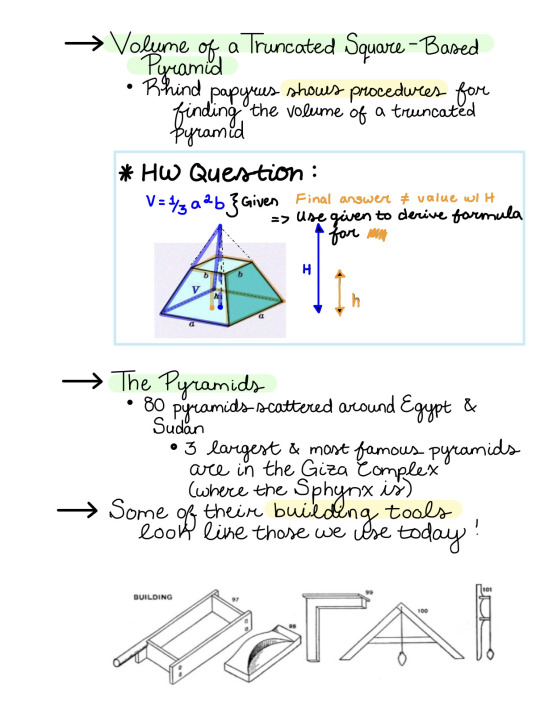 → Volume of a Truncated Square-Based
Pyramid
• Rhind papyrus shows procedures for
finding the volume of a truncated
pyramid
* HW Question:
V = 1/3 a²b } Given
Final answer ≠ value w/ H
=> use given to derive formula
for
H
h
b
b
V
h
a
a
→ The Pyramids
• 80 pyramids scattered around Egypt &
Sudan
• 3 largest & most famous pyramids
are in the Giza Complex
(where the Sphynx is)
→ Some of their building tools
look like those we use today!
BUILDING
97
98
99
100
101